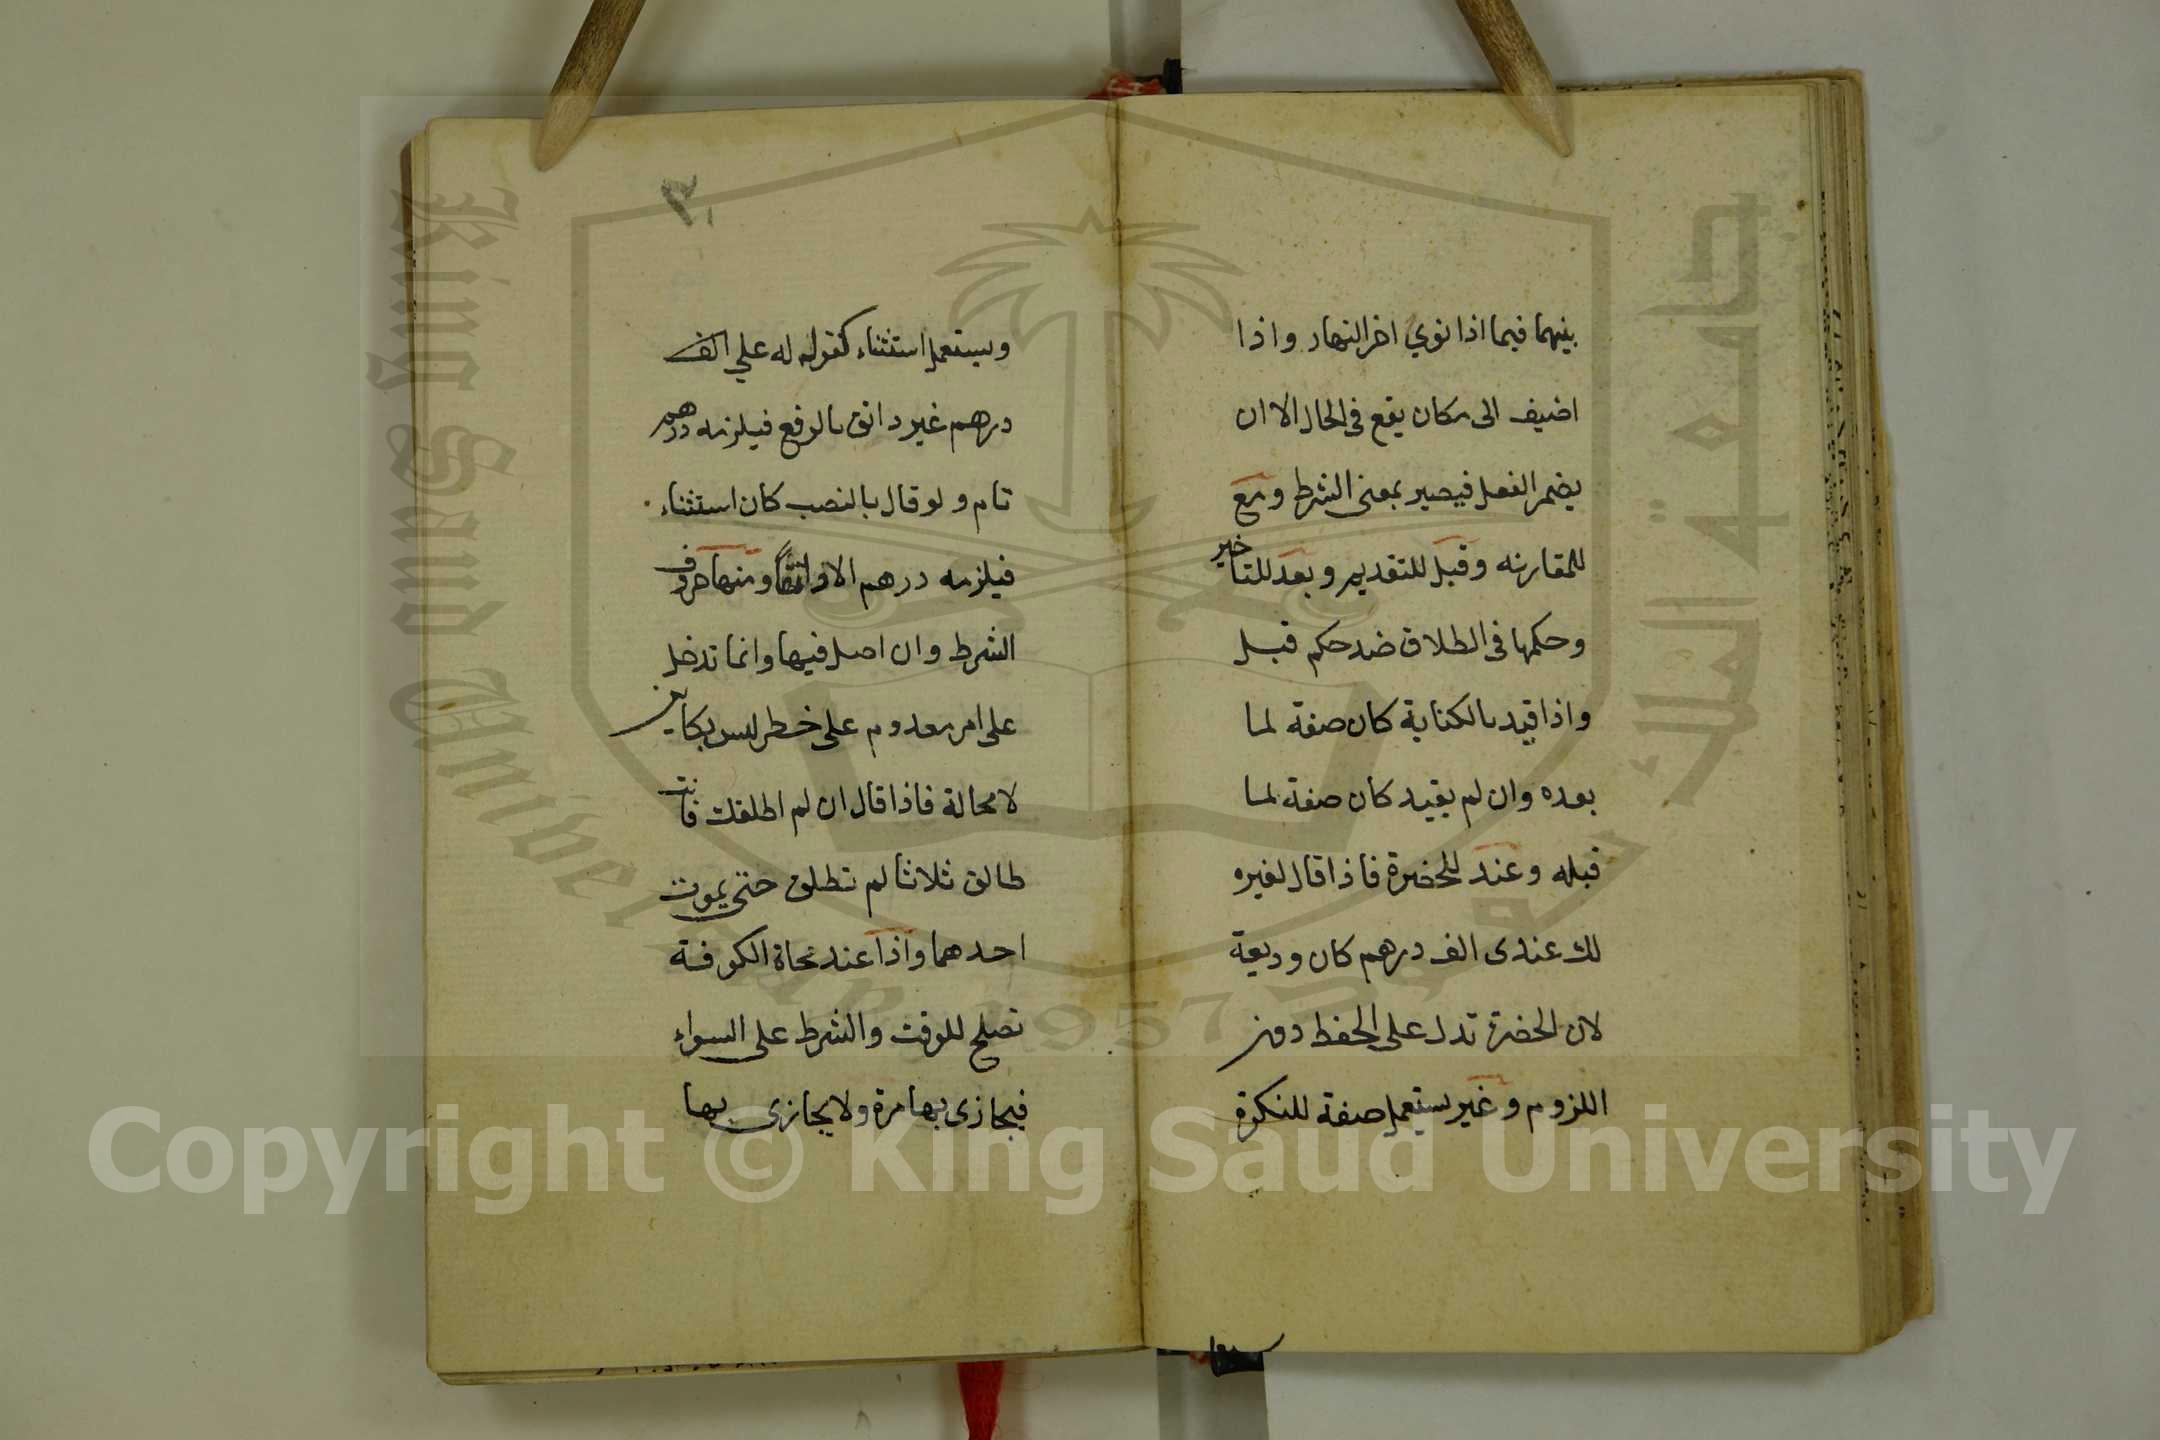 بينهما فيما اذا نوي اخر النهار واذا
اضيف الى مكان يقع في الحال الا ان
يضمر الفعل فيصير بمعنى الشرط ومع
للمقارنه وقبل للتقديم وبعد للتاخير
وحكمها في الطلاق ضد حكم قبل
واذا قيد بالكناية كان صفة لما
بعده وان لم يقيد كان صفة لما
قبله وعند للحضرة فاذا قال لغيره
لك عندى الف درهم كان وديعة
لان الحضرة تدل على الحفظ دون
اللزوم وغير يستعمل صفة للنكرة
ويستعمل استثناء كقوله له علي الف
درهم غير دانق بالرفع فيلزمه درهم
تام ولو قال بالنصب كان استثناء
فيلزمه درهم الا دانقا ومنها حروف
الشرط وان اصل فيها وانما تدخل
على امر معدوم على خطر ليس بكاين
لا محالة فاذا قال ان لم اطلقك فانت
طالق ثلاثا لم تطلق حتى يموت
احدهما واذا عند نحاة الكوفة
تصلح للوقت والشرط على السواء
فيجازى بها مرة ولا يجازى بها
King Saud University
جامعة الملك سعود
1957
Copyright © King Saud University